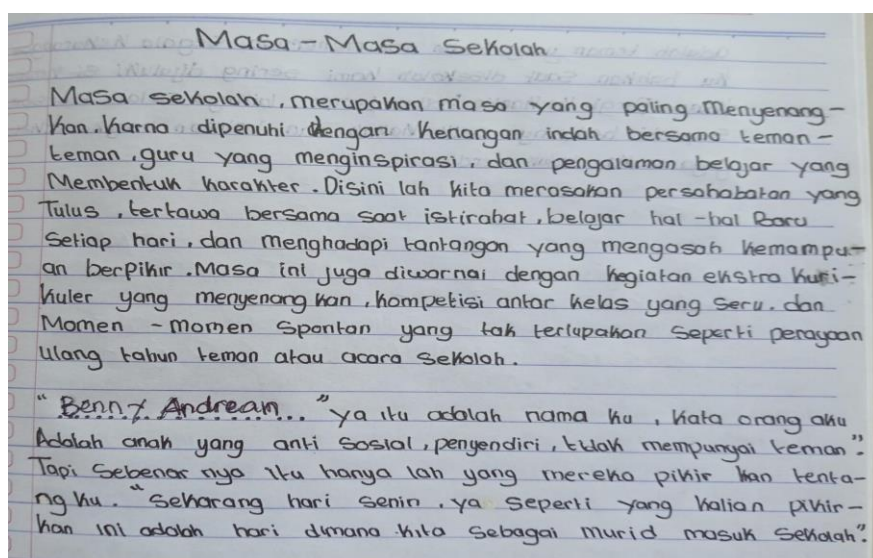 Masa - Masa Sekolah
Masa sekolah, merupakan masa yang paling Menyenang-
kan. karna dipenuhi dengan kenangan indah bersama teman -
teman, guru yang menginspirasi, dan pengalaman belajar yang
Membentuk karakter. Disini lah kita merasakan persahabatan yang
Tulus, tertawa bersama saat istirahat, belajar hal - hal Baru
Setiap hari, dan menghadapi tantangan yang mengasah kemampu-
an berpikir. Masa ini juga diwarnai dengan kegiatan ekstra kuri-
kuler yang menyenang kan, kompetisi antar kelas yang seru. dan
Momen - momen Spontan yang tak terlupakan Seperti perayaan
Ulang tahun teman atau acara Sekolah.
"Benny Andrean..." ya itu adalah nama ku, kata orang aku
Adalah anak yang anti Sosial, penyendiri, tidak mempunyai teman".
Tapi Sebenar nya itu hanya lah yang mereka pikir kan tenta-
ng ku. "Sekarang hari Senin, ya Seperti yang kalian pikir-
kan ini adalah hari dimana kita Sebagai murid masuk Sekolah".